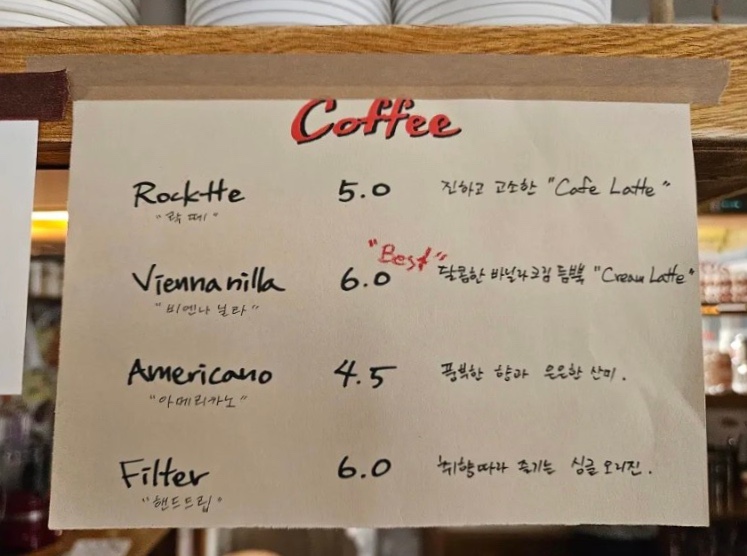 Coffee
Rocktte 5.0 진하고 고소한 "Cafe Latte"
"락떼"
"Best"
Viennanilla 6.0 달콤한 바닐라크림 듬뿍 "Cream Latte"
"비엔나 닐라"
Americano 4.5 풍부한 향과 은은한 산미.
"아메리카노"
Filter 6.0 취향따라 즐기는 싱글 오리진.
"핸드드립"